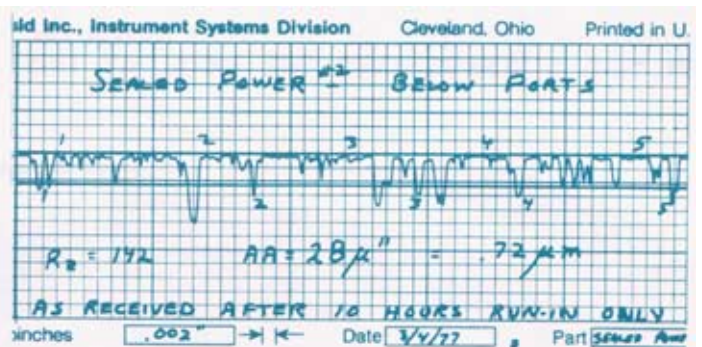 ald Inc., Instrument Systems Division Cleveland, Ohio Printed in U.
SEALED POWER #2 BELOW PORTS
1 2 3 4 5
1 2 3 4 5
Rz = 142 AA = 28µ" = .72µm
AS RECEIVED AFTER 10 HOURS RUN-IN ONLY
inches .002" Date 3/4/77 Part SEALED